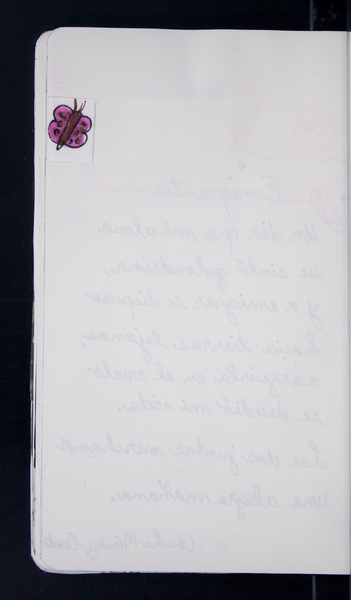 Emigrante
Un día que mi alma
se sintió golondrina,
y a emigrar se dispuso
hacia tierras lejanas,
a seguirla en el vuelo
se decidió mi vida.
Las dos juntas marcharon
una alegre mañana.
Concha Méndez